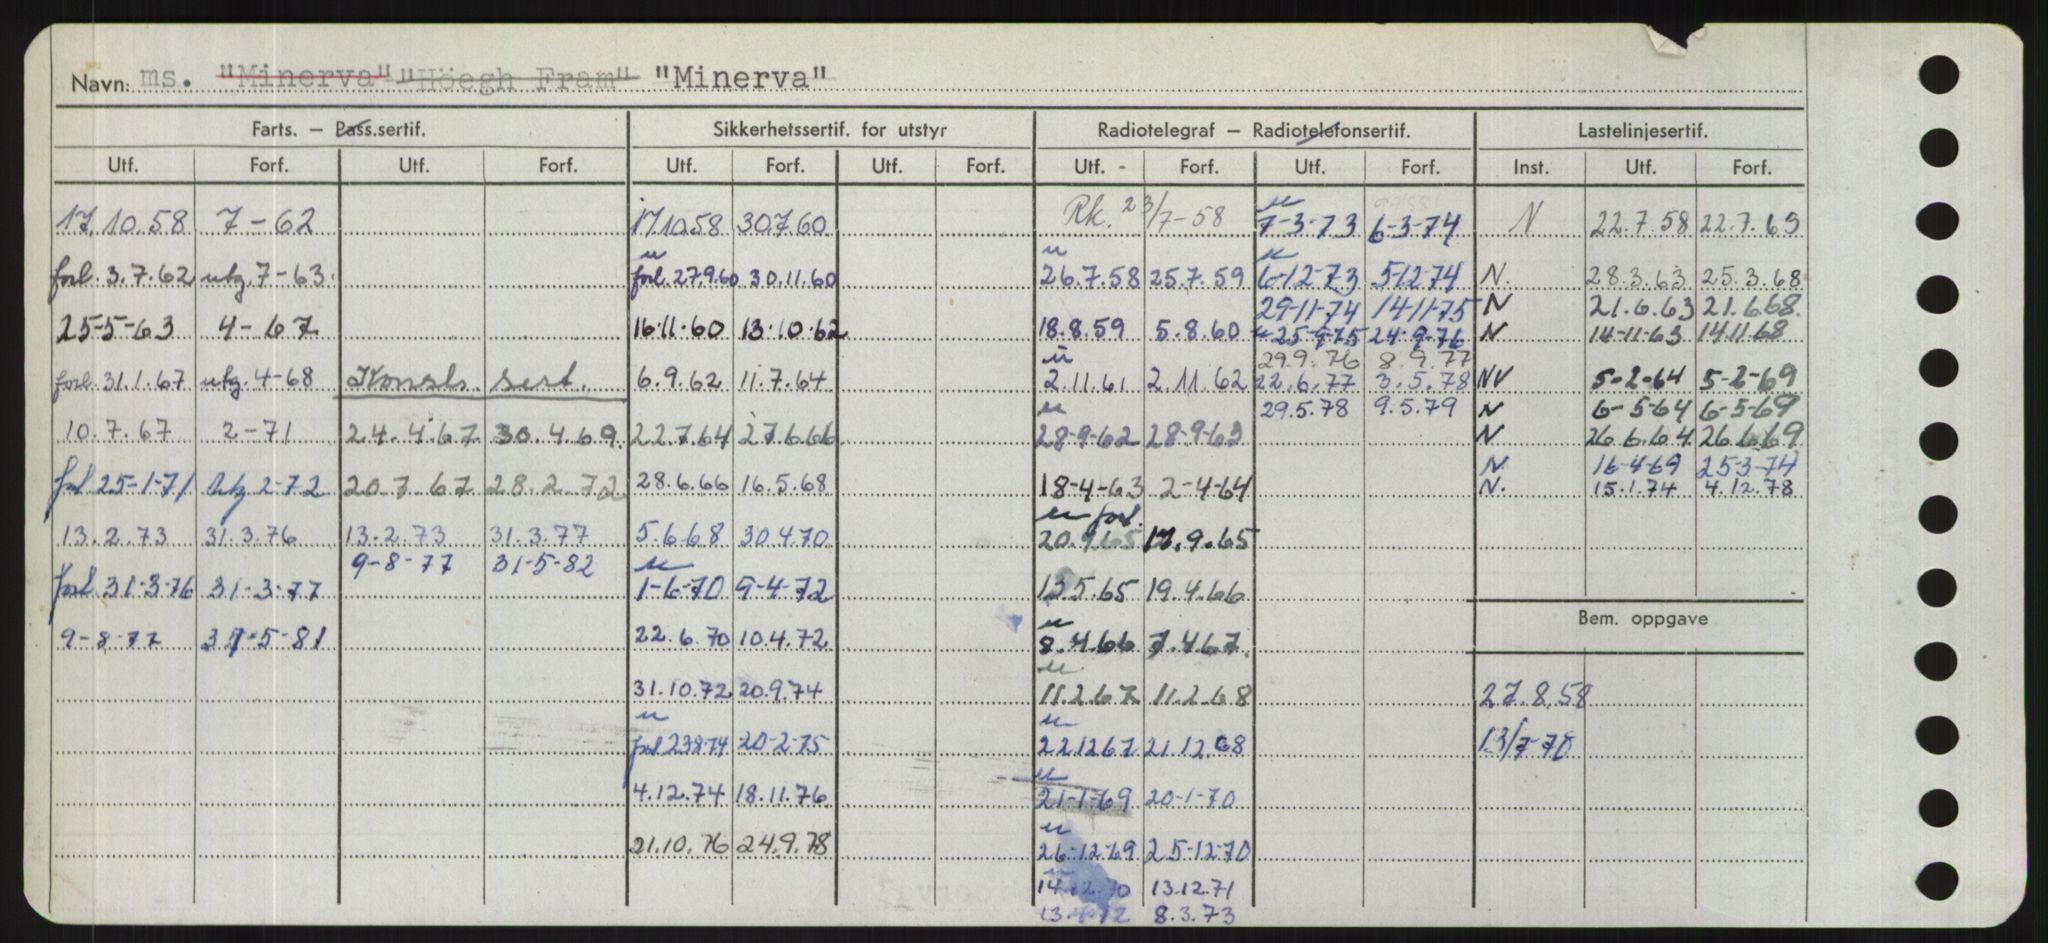 Navn: ms. "Minerva" "Höegh Fram" "Minerva"
Farts. - Pass.sertif. Sikkerhetssertif. for utstyr Radiotelegraf - Radiotelefonsertif. Lastelinjesertif.
Utf. Forf. Utf. Forf. Utf. Forf. Utf. Forf. Utf. - Forf. Utf. Forf. Inst. Utf. Forf.
17.10.58 7-62
forl. 3.7.62 utg. 7-63
25-5-63 4-67
forl. 31.1.67 utg. 4-68
10.7.67 2-71
forl 25-1-71 utg 2-72
13.2.73 31.3.76
forl 31-3-76 31-3-77
9-8-77 31-5-81
Konstr. sert.
24.4.67 30.4.69.
20.7.67 28.2.72
13-2.73 31.3.77
9-8-77 31-5-82
17.10.58 30.7.60
u
forl. 27.9.60 30.11.60
16.11.60 13.10.62
6.9.62 11.7.64
22.7.64 27.6.66
28.6.66 16.5.68
5.6.68 30.4.70
u
1-6-70 9-4-72
22.6.70 10.4.72
31.10.72 20.9.74
u
forl 23.8.74 20-2-75
4.12.74 18.11.76
21.10.76 24.9.78
Rk. 23/7-58
u
26.7.58 25.7.59
18.8.59 5.8.60
u
2.11.61 2.11.62
u
28-9-62 28-9-63
18-4-63 2-4-64
u forl.
20.9.65 17.9.65
13.5.65 19.4.66
u
8.4.66 7.4.67.
u
11.2.67 11.2.68
u
22.12.67 21.12.68
u
21-1-69 20-1-70
u
26-12-69 25-12-70
u
14.12.70 13.12.71
8.3.73
u
7-3-73 6-3-74
u
6-12-73 5-12-74
29-11-74 14-11-75
u 25-9-75 24-9-76
29.9.76 8.9.77
22.6.77 3.5.78
29.5.78 9.5.79
N 22.7.58 22.7.63
N. 28.3.63 25.3.68
N 21.6.63 21.6.68.
N 14-11-63 14.11.68
NV 5-2-64 5-2-69
N 6-5-64 6-5-69
N 26.6.64 26.6.69
N. 16-4-69 25-3-74
N. 15.1.74 4.12.78
Bem. oppgave
27.8.58
13/7-70